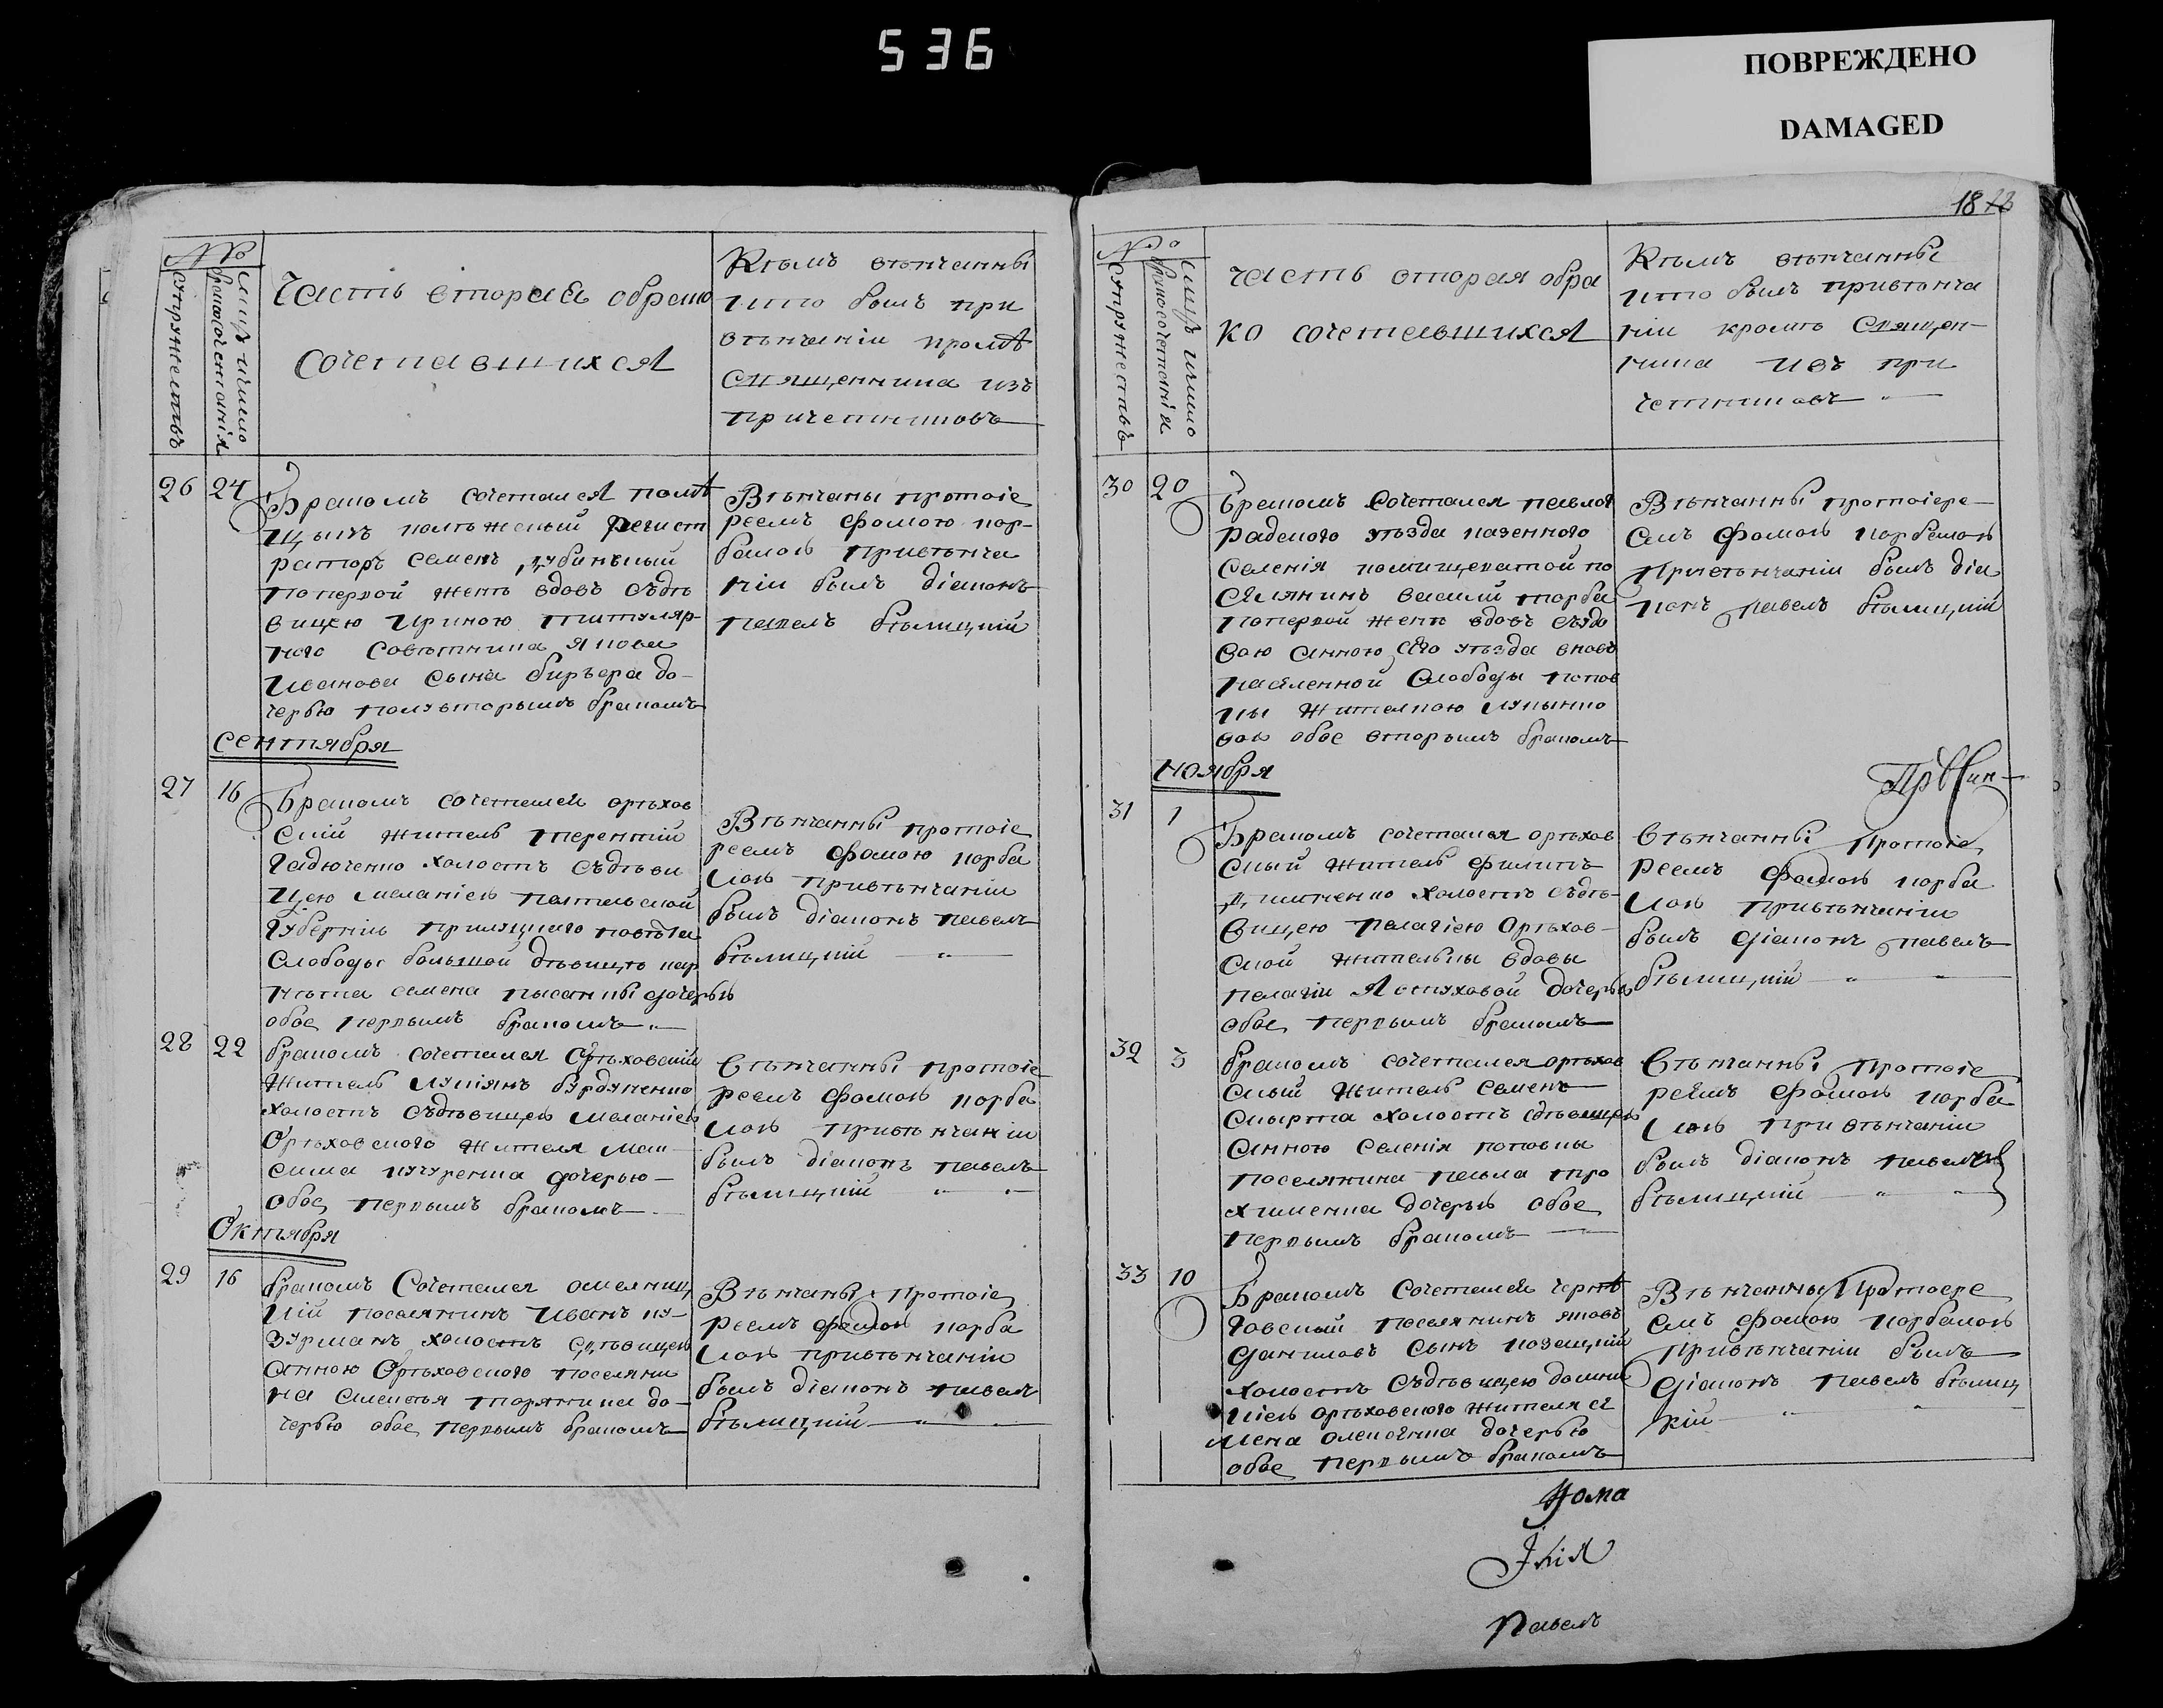 536
ПОВРЕЖДЕНО
DAMAGED
№
супружествъ
месяцъ и число
бракосочетанія
Часть вторая о брако
сочетавшихся
Кѣмъ вѣнчанны
и кто былъ при
вѣнчаніи кромѣ
священника изъ
причетниковъ
26 24
Бракомъ сочетался помѣ
щикъ колѣжскій регист
раторъ Семенъ Дубинскій
по первой женѣ вдовъ съдѣ
вицею Ириною титуляр
ного совѣтника Якова
Иванова сына до
черью полувторымъ бракомъ
Вѣнчаны протоіе
реемъ Фомою кор
балою при вѣнча
ніи былъ діаконъ
Павелъ Бѣлицкій
Сентября
27 16
Бракомъ сочетался орѣхов
скій житель Терентій
Гадюченко холостъ съдѣви
цею Меланіею полтавской
губерніи прилуцкого повѣта
слободы большой дѣвицѣ
Семена писанки дочерью
обое первымъ бракомъ
Вѣнчанны протоіе
реемъ Фомою корба
лою при вѣнчаніи
былъ діаконъ Павелъ
Бѣлицкій
28 22
Бракомъ сочетался Орѣховскій
житель Лукіянъ Бурдученко
холостъ съдѣвицею Меланіею
Орѣховского жителя Мак
сима кучуренка дочерью
обое первымъ бракомъ
Вѣнчанны протоіе
реемъ Фомою корба
лою при вѣнчаніи
былъ діаконъ Павелъ
Бѣлицкій
Октября
29 16
Бракомъ сочетался омелниц
кій поселянинъ Иванъ ку
зурманъ холостъ съдѣвицею
Анною Орѣховского поселяни
на Алексѣя торяника до
черью обое первымъ бракомъ
Вѣнчаны протоіе
реемъ Фомою корба
лою при вѣнчаніи
былъ діаконъ Павелъ
Бѣлицкій
18
№
супружествъ
месяцъ и число
бракосочетанія
Часть вторая о бра
ко сочетавшихся
Кѣмъ вѣнчанны
и кто былъ при вѣнча
ніи кромѣ священ
ника изъ при
четниковъ
30 20
Бракомъ сочетался павлог
радского уѣзда казенного
селенія помищекатой по
селянинъ Василій торба
по первой женѣ вдовъ съвдо
вою Анною сего уѣзда вновь
населенной слободы попов
ки жителкою лукьянко
вою обое вторымъ бракомъ
Вѣнчанны протоіере
емъ Фомою Корбалою
при вѣнчаніи былъ діа
конъ Павелъ Бѣлицкій
Ноября
31 1
Бракомъ сочетался орѣхов
скый житель Филипъ
Дитченко холостъ съдѣ
вицею Пелагіею Орѣхов
ской жительки вдовы
Пелагіи Ястуховой дочерью
обое первымъ бракомъ
Вѣнчанны Протоіе
реемъ Фомою корба
лою при вѣнчаніи
былъ діаконъ Павелъ
Бѣлицкій
32 3
Бракомъ сочетался орѣхов
скый житель Семенъ
Смырта холостъ съдѣвицею
Анною селенія поповки
поселянина Павла тро
хименка дочерью обое
первымъ бракомъ
Вѣнчанны протоіе
реемъ Фомою корба
лою при вѣнчаніи
былъ діаконъ Павелъ
Бѣлицкій
33 10
Бракомъ сочетался черни
говскый поселянинъ Яковъ
Даниловъ сынъ козацкій
холостъ съдѣвицею домни
кіею орѣховского жителя се
мена олексѣнка дочерью
обое первымъ бракомъ
Вѣнчанны Протоере
емъ Фомою корбалою
при вѣнчаніи былъ
діаконъ Павелъ Бѣлиц
кій
Фома
Павелъ